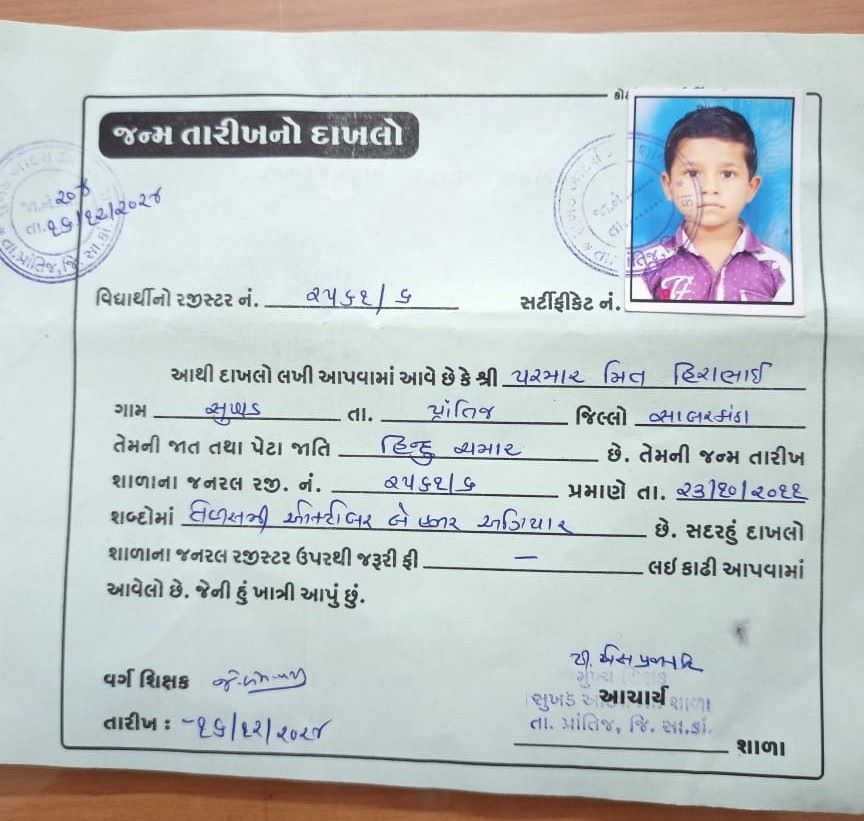 જન્મ તારીખનો દાખલો
જા.નં ૨૦૪
તા. ૧૬/૧૨/૨૦૨૪
તા. પ્રાંતિજ, જિ. સા.કાં
વિદ્યાર્થીનો રજીસ્ટર નં. ૨૫૬૧/૬ સર્ટીફીકેટ નં.
આથી દાખલો લખી આપવામાં આવે છે કે શ્રી પરમાર મિત હિરાભાઈ
ગામ સુખડ તા. પ્રાંતિજ જિલ્લો સાબરકાંઠા
તેમની જાત તથા પેટા જાતિ હિન્દુ ચમાર છે. તેમની જન્મ તારીખ
શાળાના જનરલ રજી. નં. ૨૫૬૧/૬ પ્રમાણે તા. ૨૩/૧૦/૨૦૧૧
શબ્દોમાં ઓક્ટોબર બે હજાર અગિયાર છે. સદરહું દાખલો
શાળાના જનરલ રજીસ્ટર ઉપરથી જરૂરી ફી — લઇ કાઢી આપવામાં
આવેલો છે. જેની હું ખાત્રી આપું છું.
વર્ગ શિક્ષક
આચાર્ય
સુખડ શાળા
તારીખ : -૧૬/૧૨/૨૦૨૪
તા. પ્રાંતિજ, જિ. સા.કાં.
શાળા